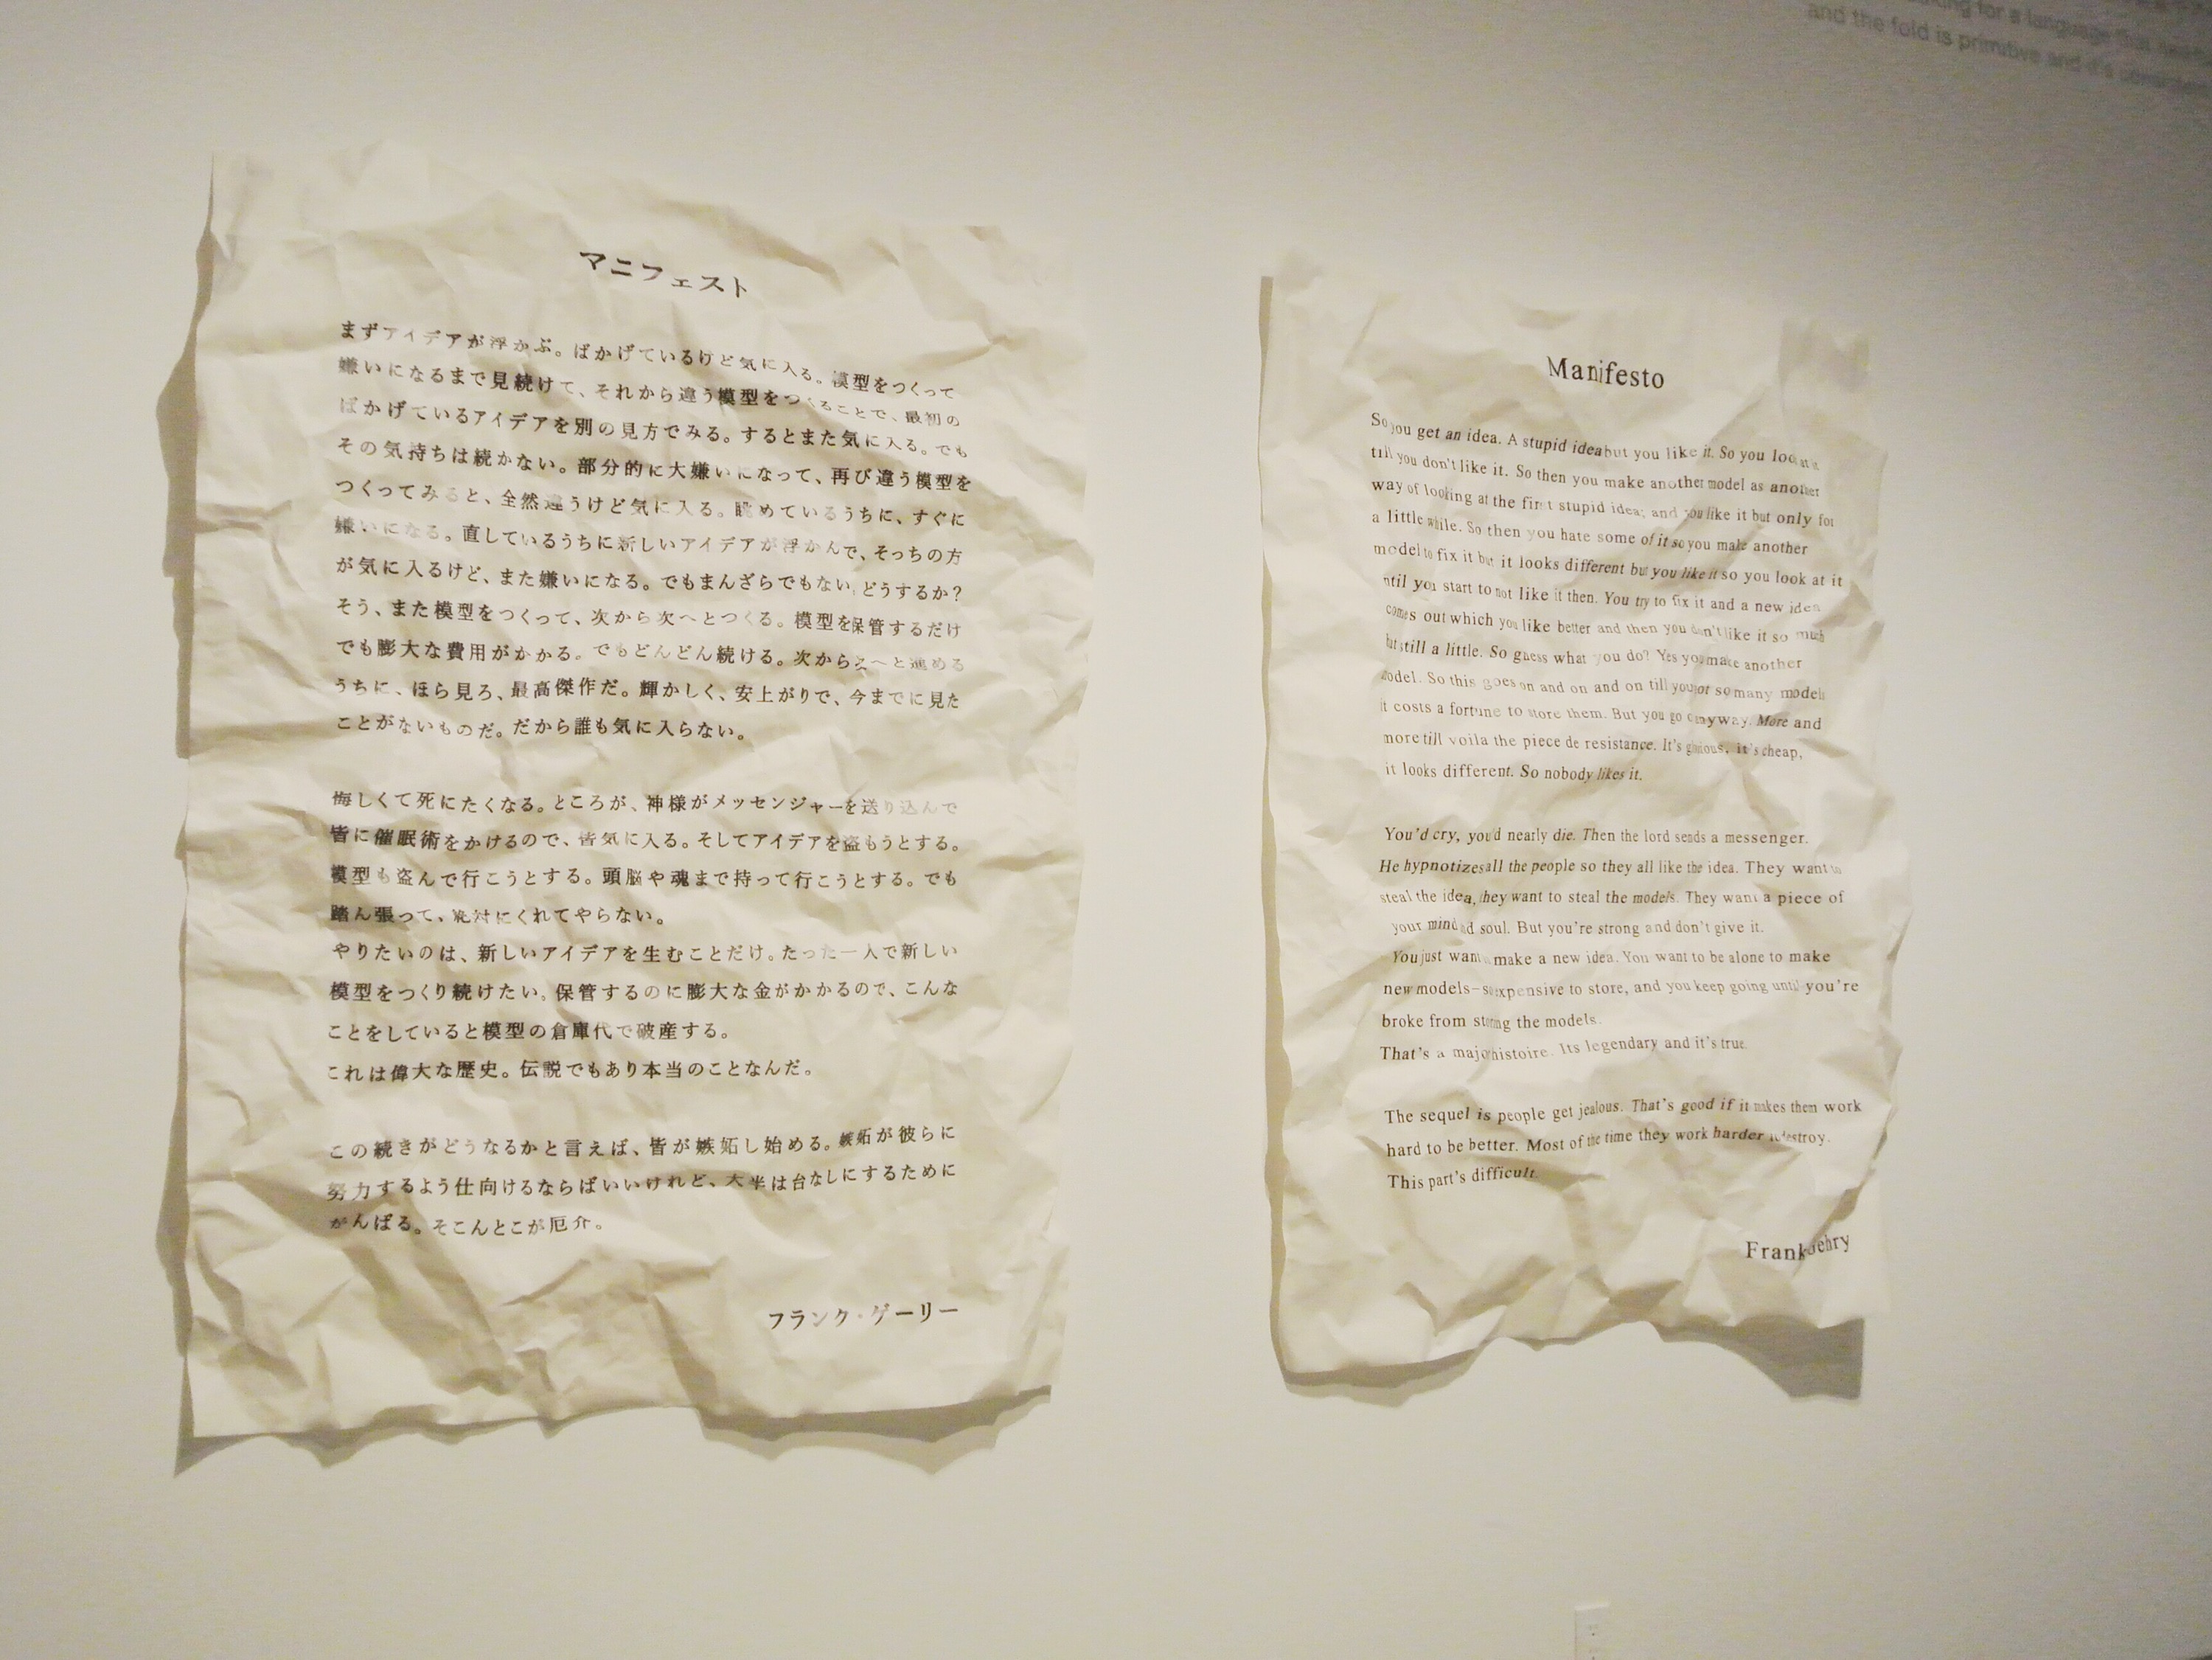 マニフェスト
まずアイデアが浮かぶ。ばかげているけど気に入る。模型をつくって
嫌いになるまで見続けて、それから違う模型をつくることで、最初の
ばかげているアイデアを別の見方でみる。するとまた気に入る。でも
その気持ちは続かない。部分的に大嫌いになって、再び違う模型を
つくってみると、全然違うけど気に入る。眺めているうちに、すぐに
嫌いになる。直しているうちに新しいアイデアが浮かんで、そっちの方
が気に入るけど、また嫌いになる。でもまんざらでもない。どうするか?
そう、また模型をつくって、次から次へとつくる。模型を保管するだけ
でも膨大な費用がかかる。でもどんどん続ける。次から次へと進める
うちに、ほら見ろ、最高傑作だ。輝かしく、安上がりで、今までに見た
ことがないものだ。だから誰も気に入らない。
悔しくて死にたくなる。ところが、神様がメッセンジャーを送り込んで
皆に催眠術をかけるので、皆気に入る。そしてアイデアを盗もうとする。
模型も盗んで行こうとする。頭脳や魂まで持って行こうとする。でも
踏ん張って、絶対にくれてやらない。
やりたいのは、新しいアイデアを生むことだけ。たった一人で新しい
模型をつくり続けたい。保管するのに膨大な金がかかるので、こんな
ことをしていると模型の倉庫代で破産する。
これは偉大な歴史。伝説でもあり本当のことなんだ。
この続きがどうなるかと言えば、皆が嫉妬し始める。嫉妬が彼らに
努力するよう仕向けるならばいいけれど、大半は台なしにするために
がんばる。そこんとこが厄介。
フランク・ゲーリー
Manifesto
So you get an idea. A stupid idea but you like it. So you look at it
till you don't like it. So then you make another model as another
way of looking at the first stupid idea; and you like it but only for
a little while. So then you hate some of it so you make another
model to fix it but it looks different but you like it so you look at it
until you start to not like it then. You try to fix it and a new idea
comes out which you like better and then you don't like it so much
but still a little. So guess what you do? Yes you make another
model. So this goes on and on and on till you got so many models
it costs a fortune to store them. But you go anyway. More and
more till voila the piece de resistance. It's glorious, it's cheap,
it looks different. So nobody likes it.
You'd cry, you'd nearly die. Then the lord sends a messenger.
He hypnotizes all the people so they all like the idea. They want to
steal the idea, they want to steal the models. They want a piece of
your mind soul. But you're strong and don't give it.
You just want make a new idea. You want to be alone to make
new models-so expensive to store, and you keep going until you're
broke from storing the models.
That's a major histoire. Its legendary and it's true.
The sequel is people get jealous. That's good if it makes them work
hard to be better. Most of the time they work harder to destroy.
This part's difficult.
Frank Gehry
for a language that
and the fold is primitive and it's